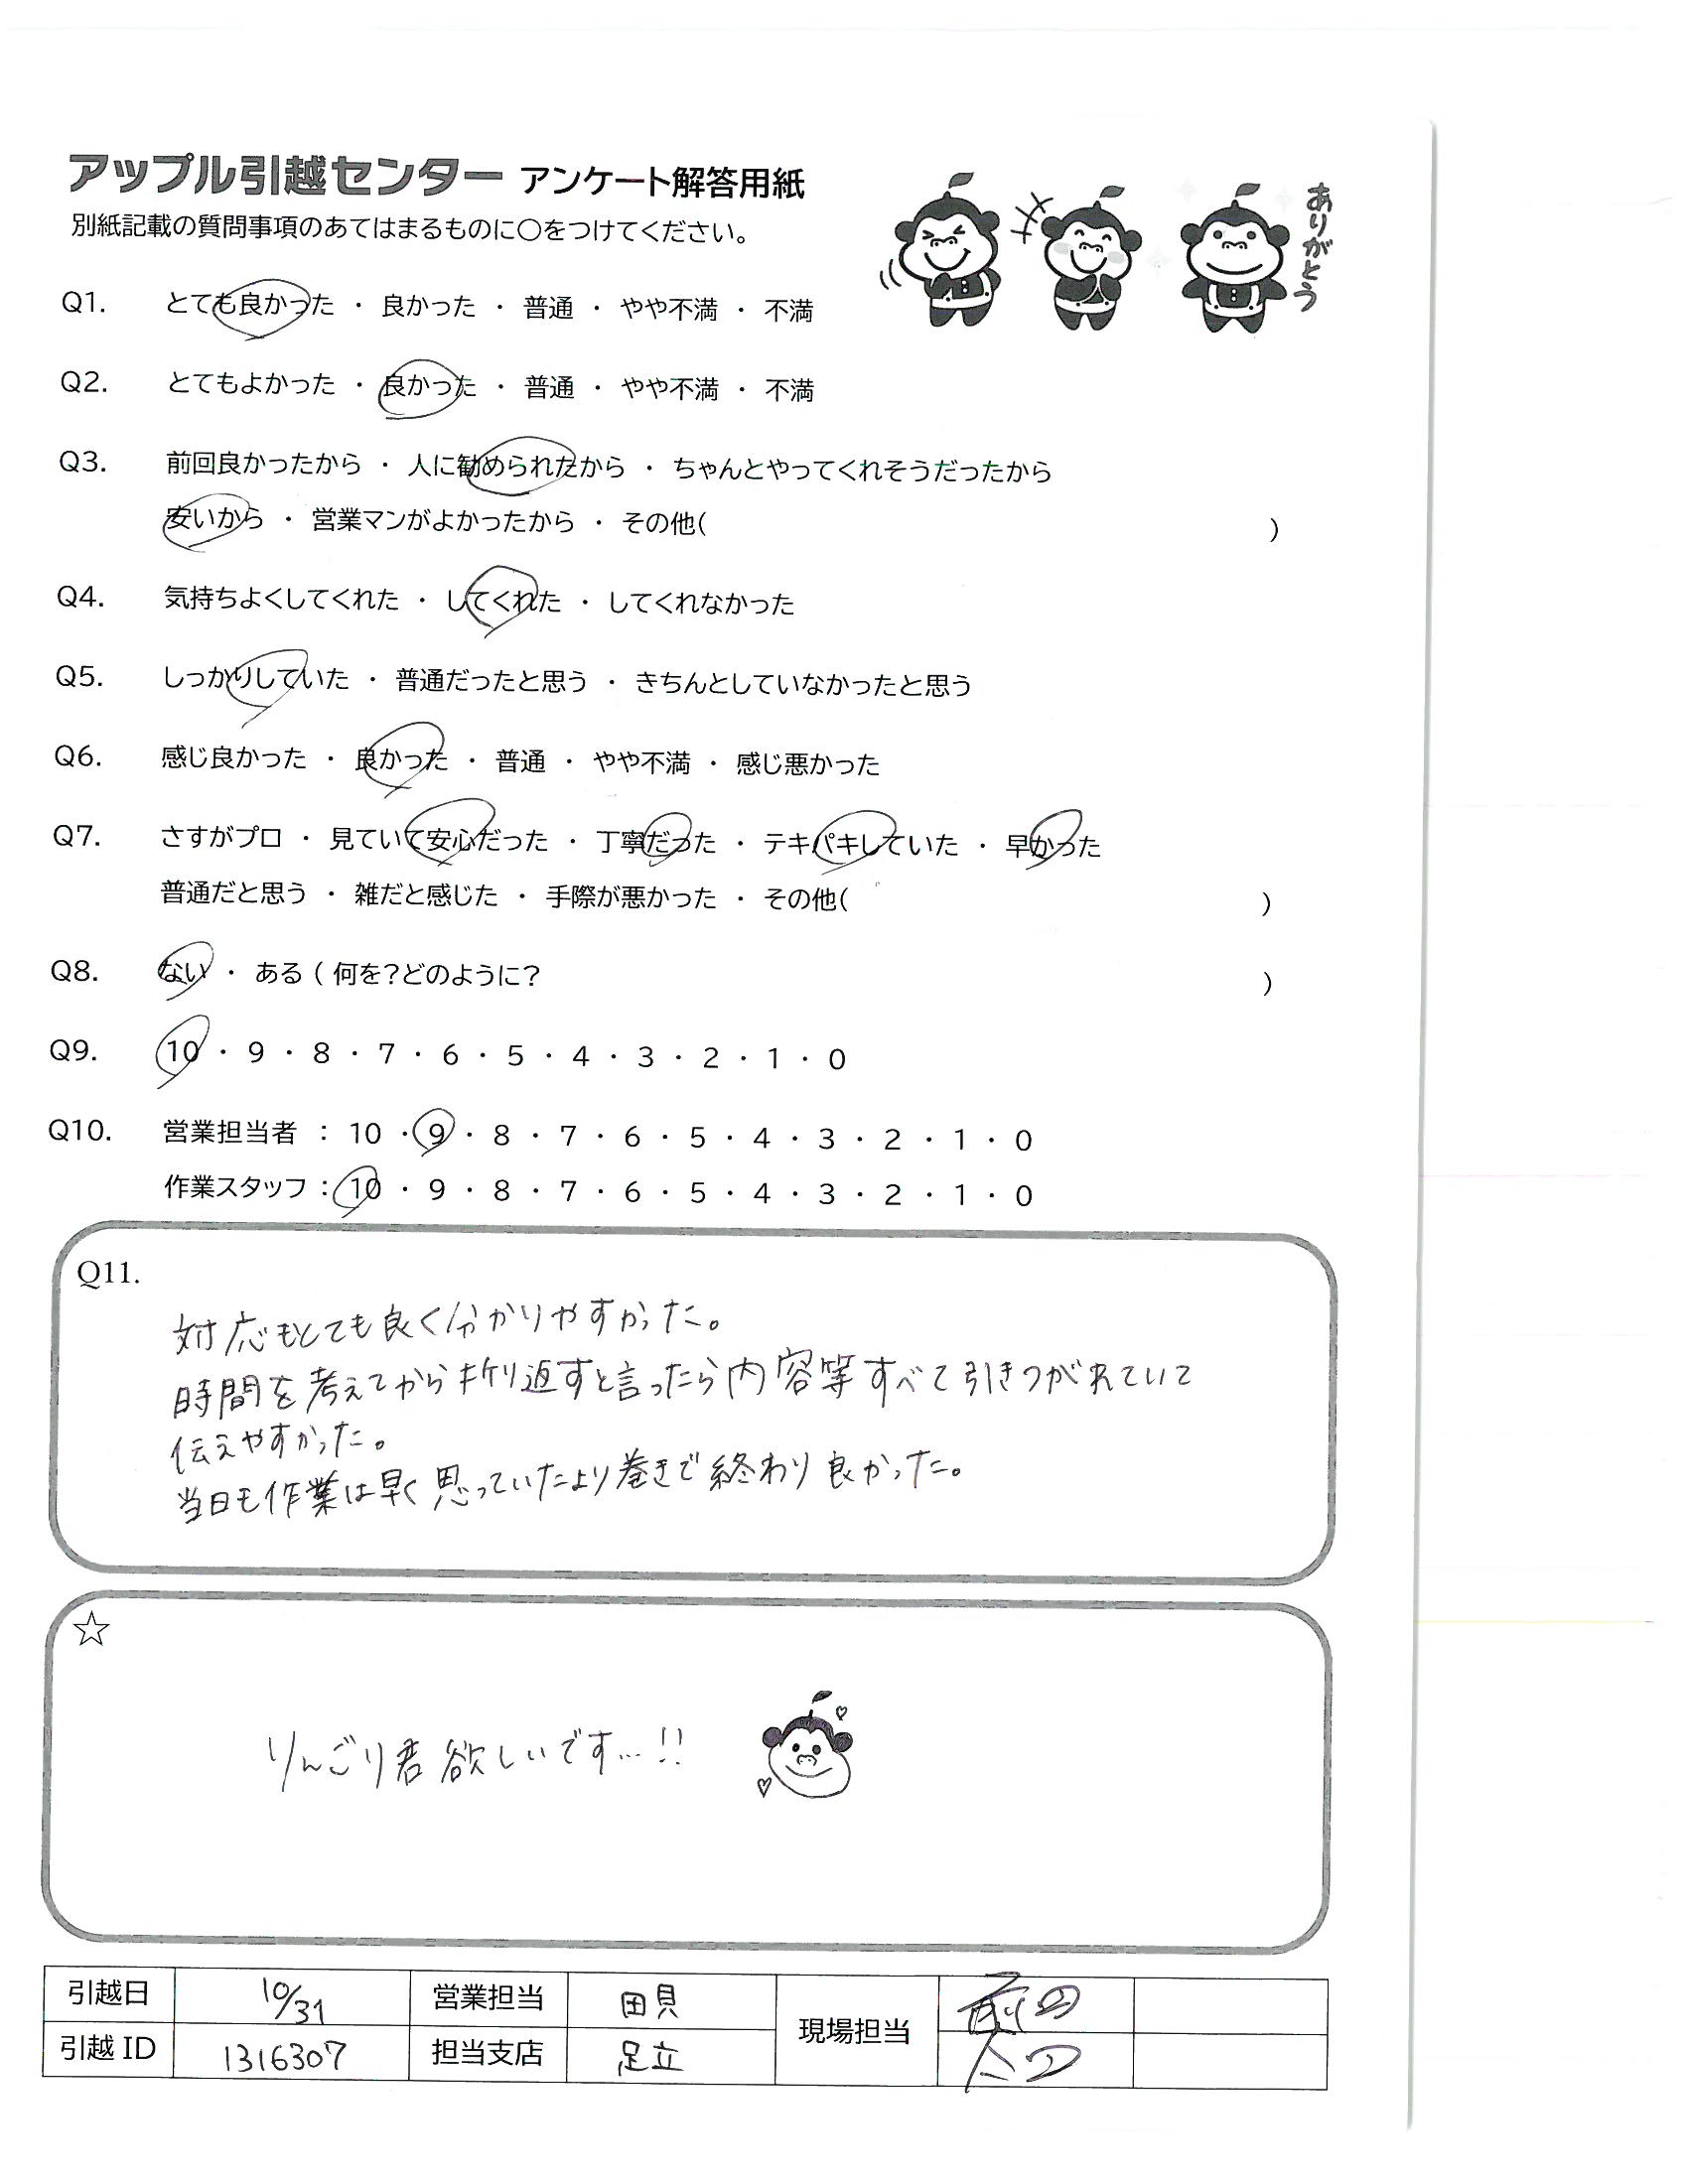 アップル引越センター アンケート解答用紙
別紙記載の質問事項のあてはまるものに○をつけてください。
ありがとう
Q1. とても良かった ・ 良かった ・ 普通 ・ やや不満 ・ 不満
Q2. とてもよかった ・ 良かった ・ 普通 ・ やや不満 ・ 不満
Q3. 前回良かったから ・ 人に勧められたから ・ ちゃんとやってくれそうだったから
安いから ・ 営業マンがよかったから ・ その他( )
Q4. 気持ちよくしてくれた ・ してくれた ・ してくれなかった
Q5. しっかりしていた ・ 普通だったと思う ・ きちんとしていなかったと思う
Q6. 感じ良かった ・ 良かった ・ 普通 ・ やや不満 ・ 感じ悪かった
Q7. さすがプロ ・ 見ていて安心だった ・ 丁寧だった ・ テキパキしていた ・ 早かった
普通だと思う ・ 雑だと感じた ・ 手際が悪かった ・ その他( )
Q8. ない ・ ある ( 何を?どのように? )
Q9. 10 ・ 9 ・ 8 ・ 7 ・ 6 ・ 5 ・ 4 ・ 3 ・ 2 ・ 1 ・ 0
Q10. 営業担当者 : 10 ・ 9 ・ 8 ・ 7 ・ 6 ・ 5 ・ 4 ・ 3 ・ 2 ・ 1 ・ 0
作業スタッフ : 10 ・ 9 ・ 8 ・ 7 ・ 6 ・ 5 ・ 4 ・ 3 ・ 2 ・ 1 ・ 0
Q11.
対応もとても良く分かりやすかった。
時間を考えてから折り返すと言ったら内容等すべて引きつがれていて
伝えやすかった。
当日も作業は早く思っていたより巻きで終わり良かった。
☆
りんごり君欲しいです…!!
引越日 10/31 営業担当 田貝 現場担当 前田
引越ID 1316307 担当支店 足立